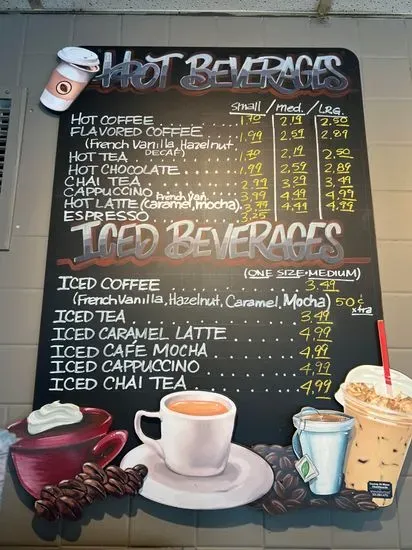 HOT BEVERAGES
small / med. / LRG.
HOT COFFEE 1.70 2.19 2.50
FLAVORED COFFEE 1.99 2.59 2.89
(French Vanilla, Hazelnut, DECAF)
HOT TEA 1.70 2.19 2.50
HOT CHOCOLATE 1.99 2.59 2.89
CHAI TEA 2.99 3.29 3.49
CAPPUCCINO French Van. 3.99 4.49 4.99
HOT LATTE (caramel, mocha) 3.79 4.49 4.99
ESPRESSO 3.25
ICED BEVERAGES
(ONE SIZE-MEDIUM)
ICED COFFEE 3.49
(French Vanilla, Hazelnut, Caramel, Mocha) 50¢ xtra
ICED TEA 3.49
ICED CARAMEL LATTE 4.99
ICED CAFÉ MOCHA 4.99
ICED CAPPUCCINO 4.99
ICED CHAI TEA 4.99